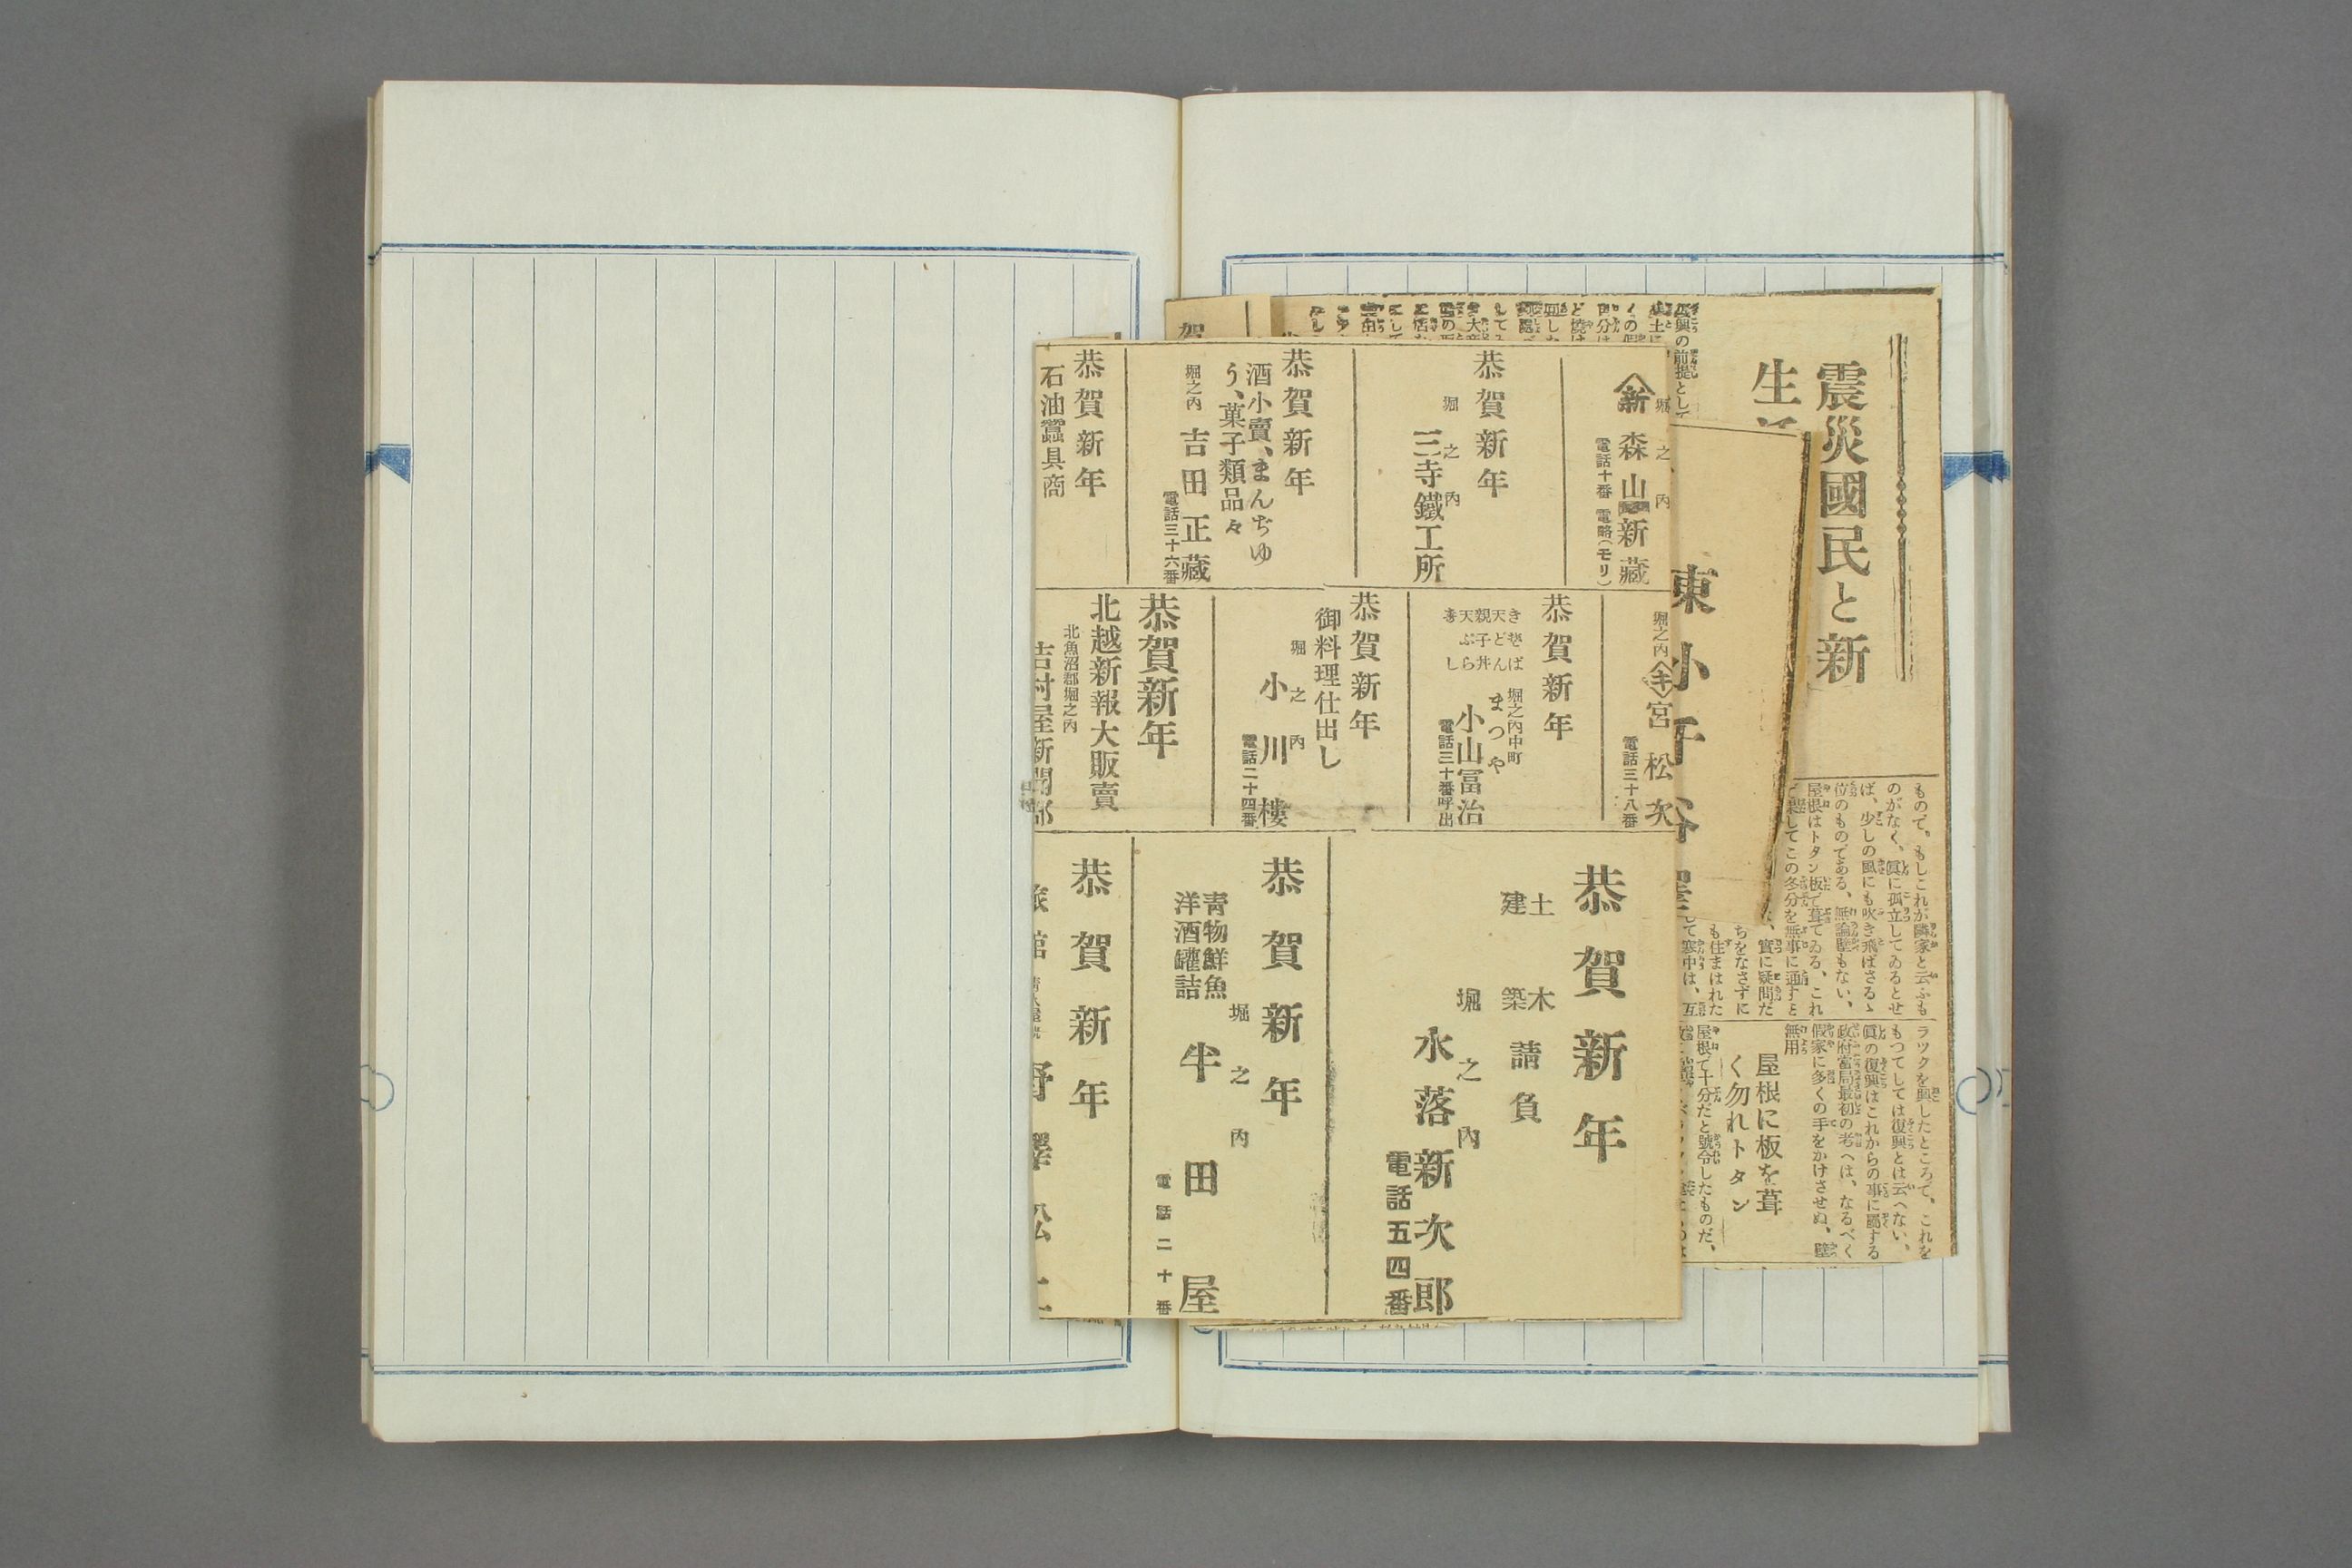 震災國民と新
生
復興の前提として
東小千谷
ものて、もしこれが隣家と云ふも
のがなく、眞に孤立してゐるとせ
ば、少しの風にも吹き飛ばさるゝ
位のものてある、無論壁もない、
屋根はトタン板て葺てゐる、これ
て果してこの多分を無事に通すと
、實に疑問だ
ちをなさずに
も住まはれた
して寒中は、互
ラツクを興したところて、これを
もつてしては復興とは云へない、
眞の復興はこれからの事に屬する
政府當局最初の考へは、なるべく
假家に多くの手をかけさせぬ、壁
無用
屋根に板を葺
く勿れトタン
屋根て十分だと號令したものだ、
堀之内
新
森山新藏
電話十番 電略(モリ)
恭賀新年
堀之内
三寺鐵工所
恭賀新年
酒小賣、まんぢゆ
う、菓子類品々
堀之内
吉田正藏
電話三十六番
恭賀新年
石油蠶具商
堀之内
キ
宮松次
電話三十八番
恭賀新年
きそば
天どん
親子丼
天ぷら
壽し
堀之内中町
まつや
小山冨治
電話三十番呼出
恭賀新年
御料理仕出し
堀之内
小川樓
電話二十四番
恭賀新年
北越新報大販賣
北魚沼郡堀之内
吉村屋新聞部
恭賀新年
土木
建築
請負
堀之内
水落新次郎
電話五四番
恭賀新年
青物鮮魚
洋酒罐詰
堀之内
半田屋
電話二十番
恭賀新年
旅館
賀